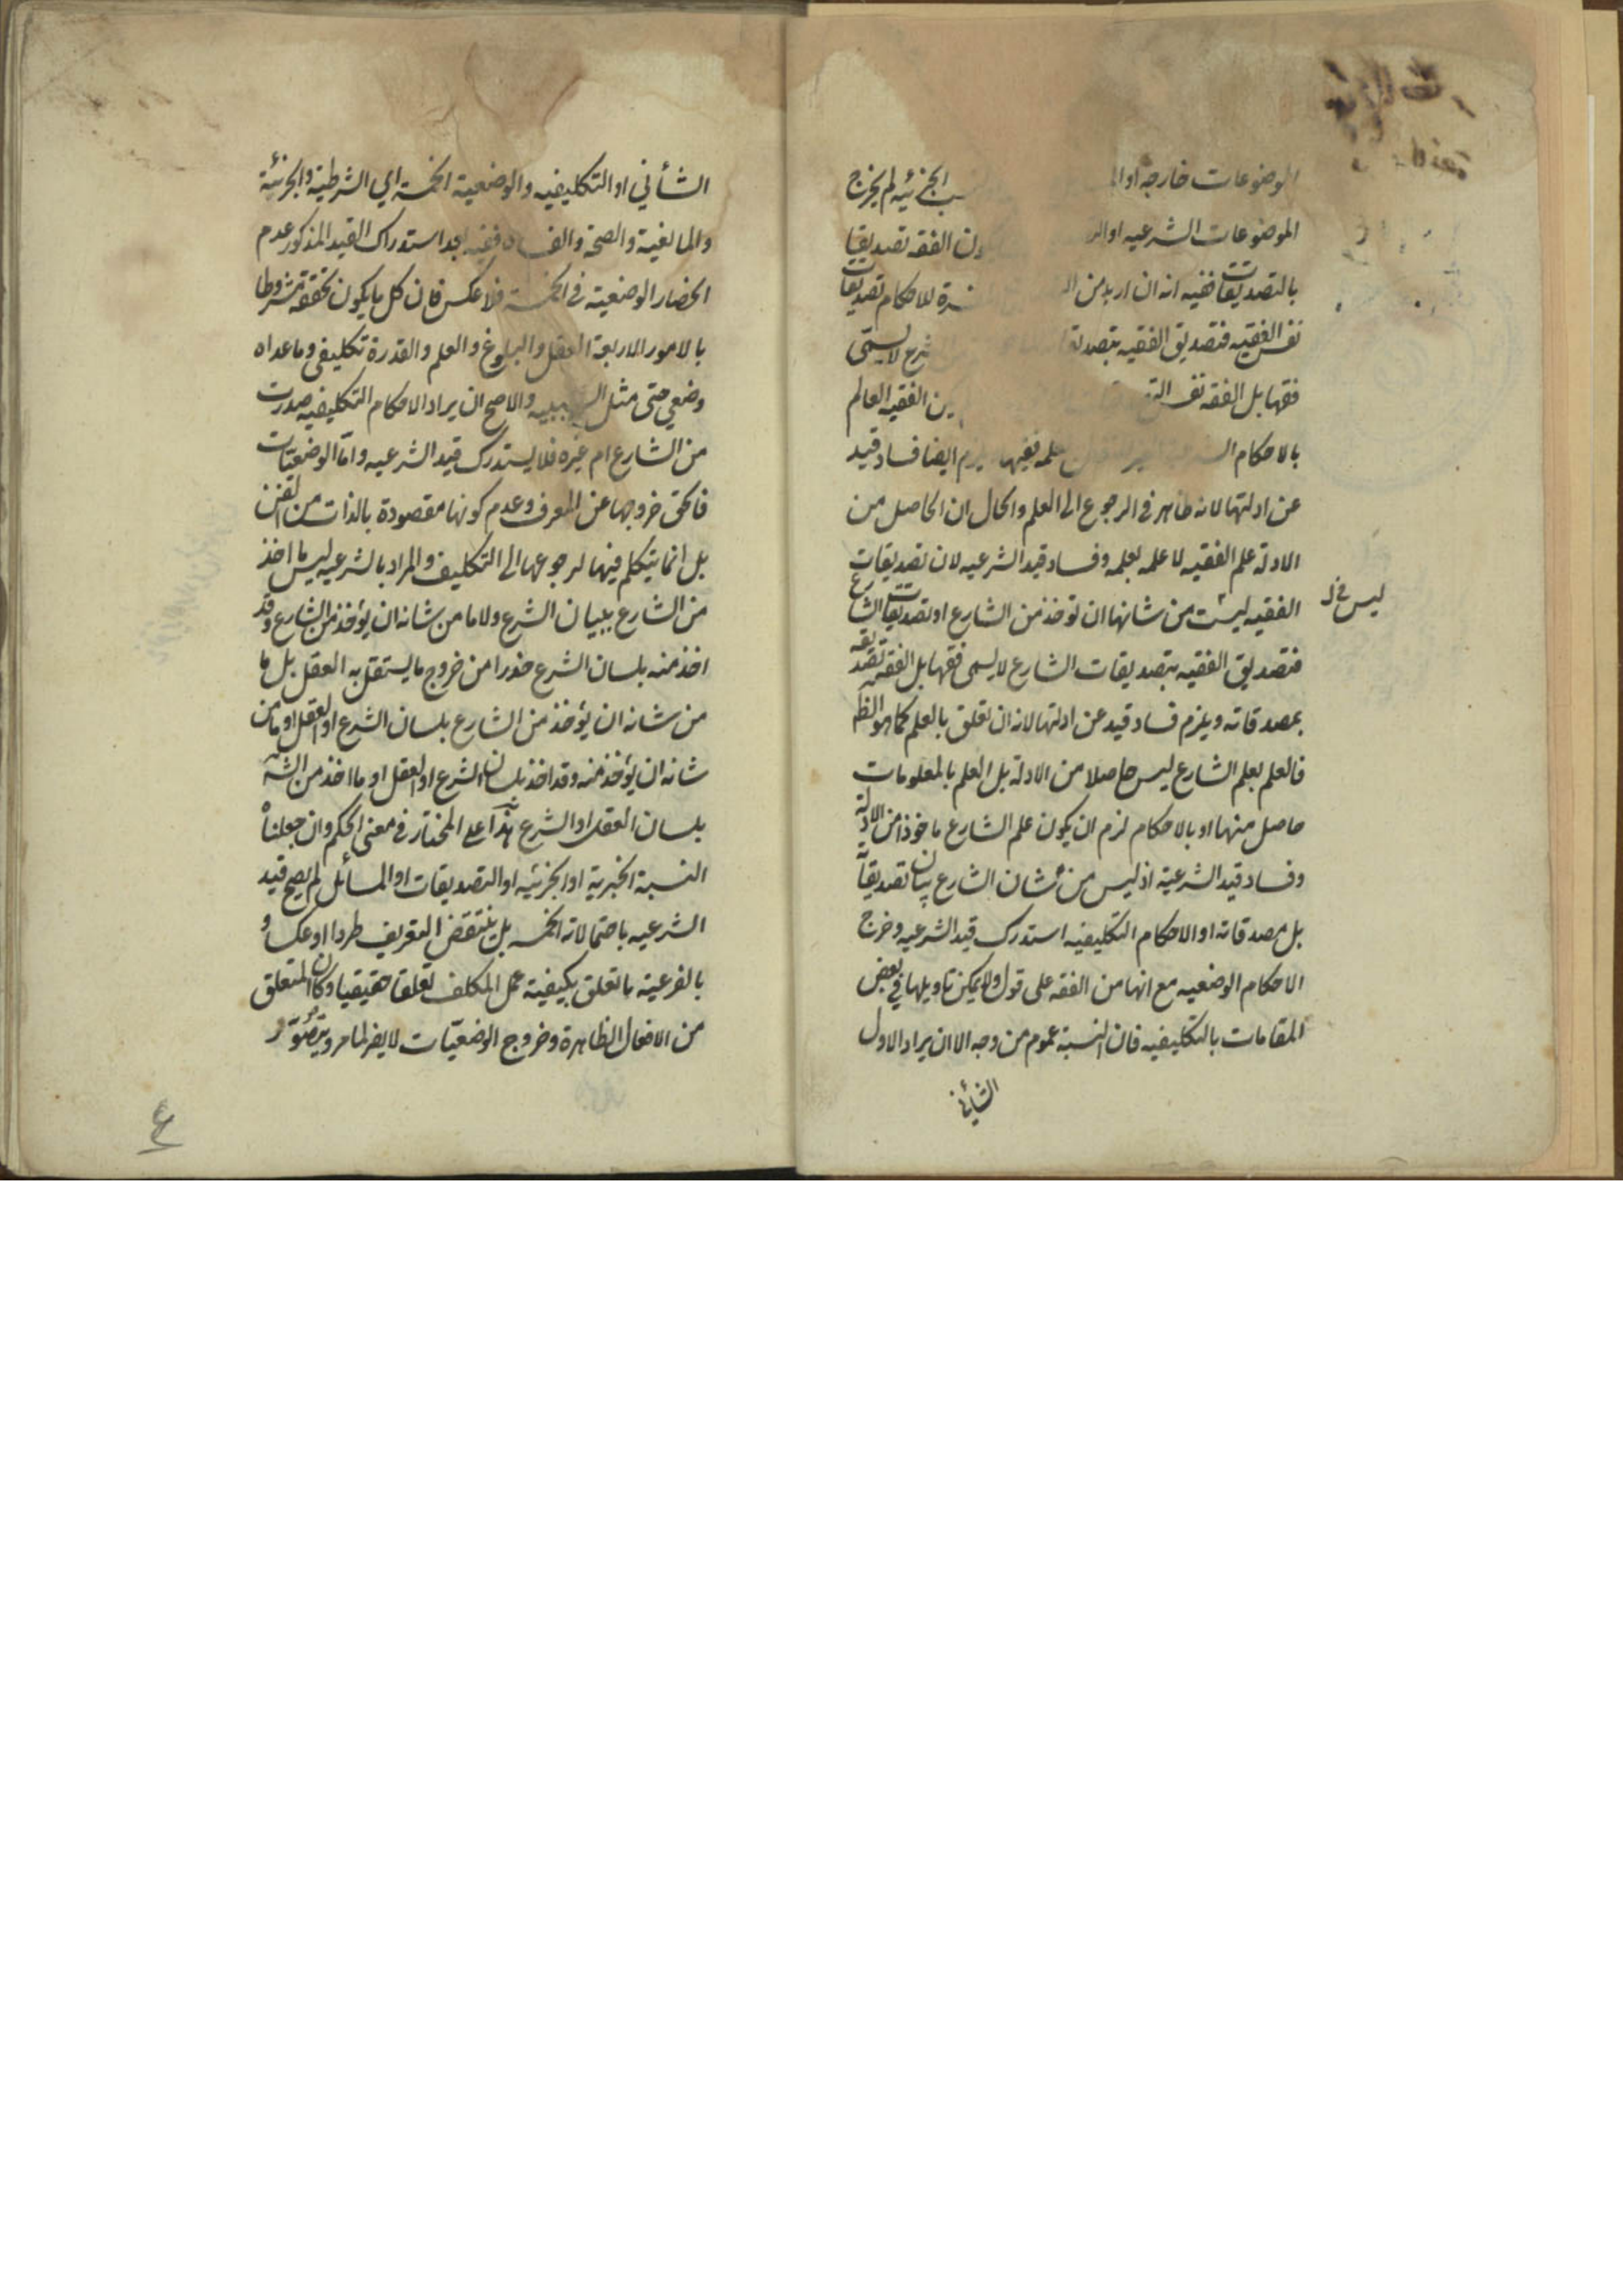 الموضوعات خارجة او النسب الجزئيه لم يخرج
الموضوعات الشرعيه كون الفقه تصديقا
بالتصديقات ففيه انه ان اريد من للاحكام تصديقات
نفس الفقيه فتصديق الفقيه بتصديقات لا يسمى
فقها بل الفقه نفس الفقيه العالم
بالاحكام علمه فقيها ايضا فساد قيد
عن ادلتها لانه ظاهر في الرجوع الى العلم والحال ان الحاصل من
الادلة علم الفقيه لا علمه بعلمه وفساد قيد الشرعيه لان تصديقات
الفقيه ليست من شانها ان توخذ من الشارع او تصديقات الشارع
ليس في
فتصديق الفقيه بتصديقات الشارع لا يسمى فقها بل الفقه تصديقه
بمصدقاته ويلزم فساد قيد عن ادلتها لانه ان تعلق بالعلم كما هو الظ
فالعلم بعلم الشارع ليس حاصلا من الادلة بل العلم بالمعلومات
حاصل منها او بالاحكام لزم ان يكون علم الشارع ماخوذا من الادلة
وفساد قيد الشرعية اذ ليس من شان الشارع بيان تصديقاته
بل مصدقاته او الاحكام التكليفيه استدرك قيد الشرعيه وخرج
الاحكام الوضعيه مع انها من الفقه على قول ولا يمكن تاويلها في بعض
المقامات بالتكليفيه فان النسبة عموم من وجه الا ان يراد الاول
الشأني
الشأني او التكليفيه والوضعية الخمسة اي الشرطية والجزئية
والمانعية والصحة والفساد ففيه بعد استدراك القيد المذكور عدم
انحصار الوضعية في الخمسة فلا عكس فان كل ما يكون تحققه مشروطا
بالامور الاربعة العقل والبلوغ والعلم والقدرة تكليفي وما عداه
وضعي حتى مثل السببيه والاصح ان يراد الاحكام التكليفيه صدرت
من الشارع ام غيره فلا يستدرك قيد الشرعيه واما الوضعيات
فالحق خروجها عن المعرف وعدم كونها مقصودة بالذات من الفن
بل انما يتكلم فيها لرجوعها الى التكليف والمراد بالشرعيه ليس ما اخذ
من الشارع ببيان الشرع ولا ما من شانه ان يؤخذ من الشارع وقد
اخذ منه بلسان الشرع حذرا من خروج ما يستقل به العقل بل ما
من شانه ان يؤخذ من الشارع بلسان الشرع او العقل او ما من
شانه ان يؤخذ منه وقد اخذ بلسان الشرع او العقل او ما اخذ من الشه
بلسان العقل او الشرع هذا على المختار في معنى الحكم وان جعلناه
النسبة الخبرية او الجزئيه او التصديقات او المسائل لم يصح قيد
الشرعيه باحتمالاته الخمسه بل ينتقض التعريف طردا او عكسا و
بالفرعية ما تعلق بكيفية عمل المكلف تعلقا حقيقيا وكان المتعلق
من الافعال الظاهرة وخروج الوضعيات لا يضر لما مر ويتصور
٤